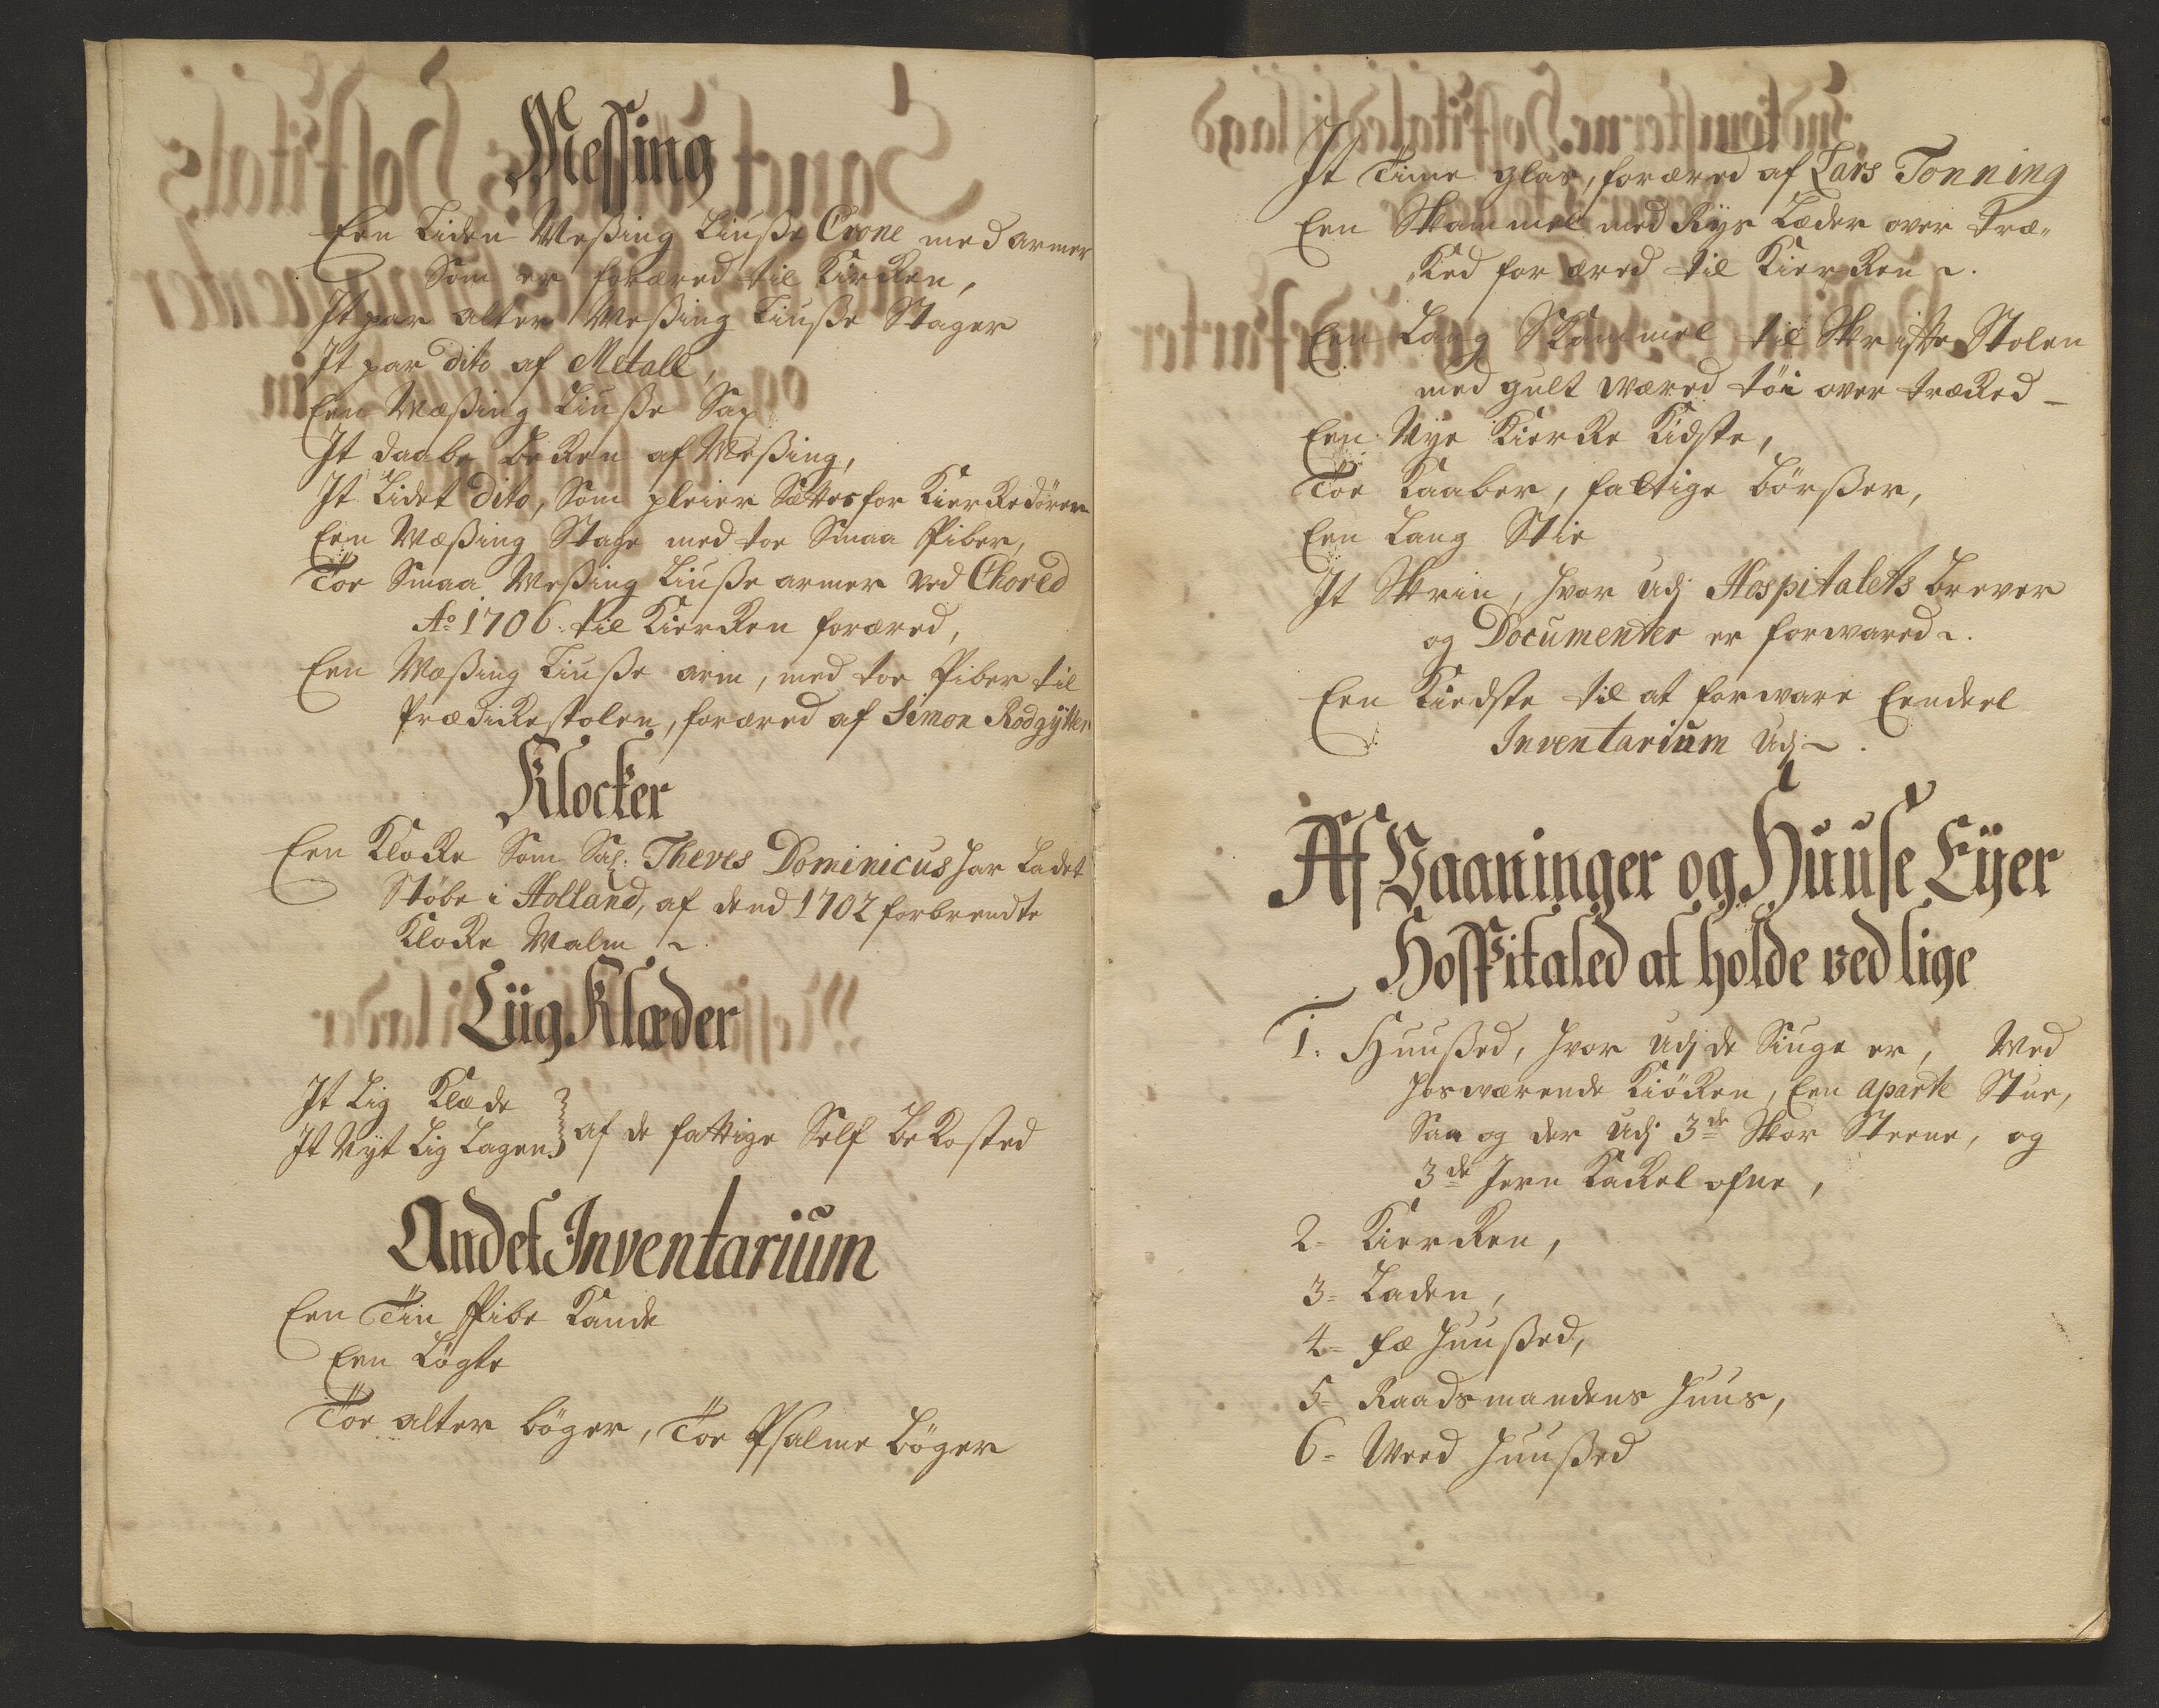 Messing
Een Liden Meßing Liuße Crone med armer
Som er foræred til Kircken,
It par alter Meßing Liuße Stager
It par dito af Metall,
Een Meßing Liuße Sax
It daabe Becken af Meßing,
It Lidet dito, Som pleier Sættes for Kierckedören
Een Meßing Stage med toe Smaa Piber,
Toe Smaa Meßing Liuße armer ved Chored
Ao 1706. til Kiercken foræred,
Een Meßing Liuße arm, med toe Piber til
Prædickestolen, foræred af Simon Rodgytter
Klocker
Een Klocke Som Sal: Theves Dominicus har Ladet
Støbe i Holland, af dend 1702 forbrendte
Klocke Malm
Liig Klæder
It Lig Klæde
It Nyt Lig Lagen af de fattige Self Bekosted
Andet Inventarium
Een Tin Pibe Kande
Een Løgte
Toe alter bøger, Toe Psalme Bøger
It Time glas, foræred af Lars Tonning
Een Skammel med Rys Læder over træ„
„ked foræred til Kiercken
Een Lang Skammel til Skriffte Stolen
med gult væred tøi over træcked
Een Nye Kiercke Kidste,
Toe Kaaber, fattige Børßer,
Een Lang Stie
It Skrin, hvor udj Hospitalets Brever
og Documenter er forvared
Een Kiedste til at forvare Eendeel
Inventarium udj
Af Vaaninger og Huuse Eyer
Hospitaled at holde ved lige
1. Huußed, hvor udj de Siuge er, Med
hosværende Kiöcken, Een aparte Stue,
Saa og der udj 3de Skor Steene, og
3de Jern Kackel ofne,
2= Kiercken,
3= Laden,
4= Fæ Huußed,
5= Raadsmandens Huus,
6= Veed Huußed